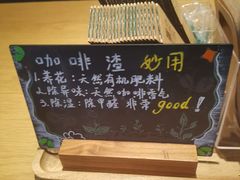 咖啡渣妙用
1.养花:天然有机肥料
2.除异味:天然咖啡香气
3.除湿:除甲醛 非常good!